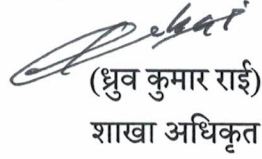 (ध्रुव कुमार राई)
शाखा अधिकृत